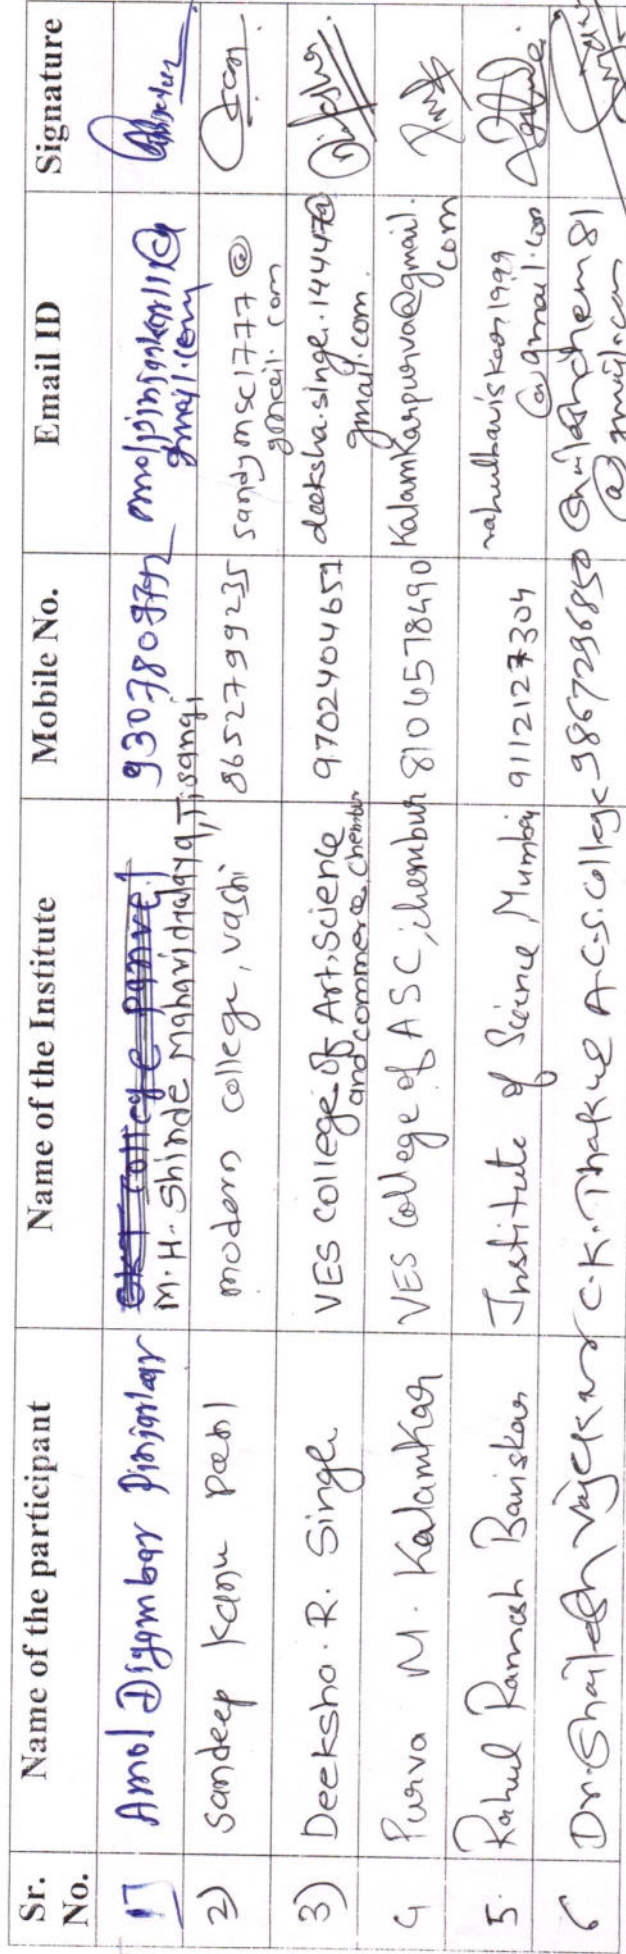 Sr. No. Name of the participant Name of the Institute Mobile No. Email ID Signature
1] Amol Digambar Pinjarkar M.H. Shinde Mahavidyalaya, Tisangi amolpinjarkar11@gmail.com
2) Sandeep Kanu Patil modern college, vashi 8652799235 sandymsc1777@gmail.com
3) Deeksha. R. Singh VES College of Art, Science and commerce, chembur 9702404651 deeksha.singh.14447@gmail.com.
4 Purva M. Kalamkar VES College of ASC, chembur 8104578490 Kalamkarpurva@gmail.com
5. Rahul Ramesh Baviskar Institute of Science Mumbai 9112127304 rahulbaviskar1999@gmail.com
6 Dr. Shailesh Vajekar C.K. Thakur A.C.S. College 9867296850 Shaileshchem81@gmail.com